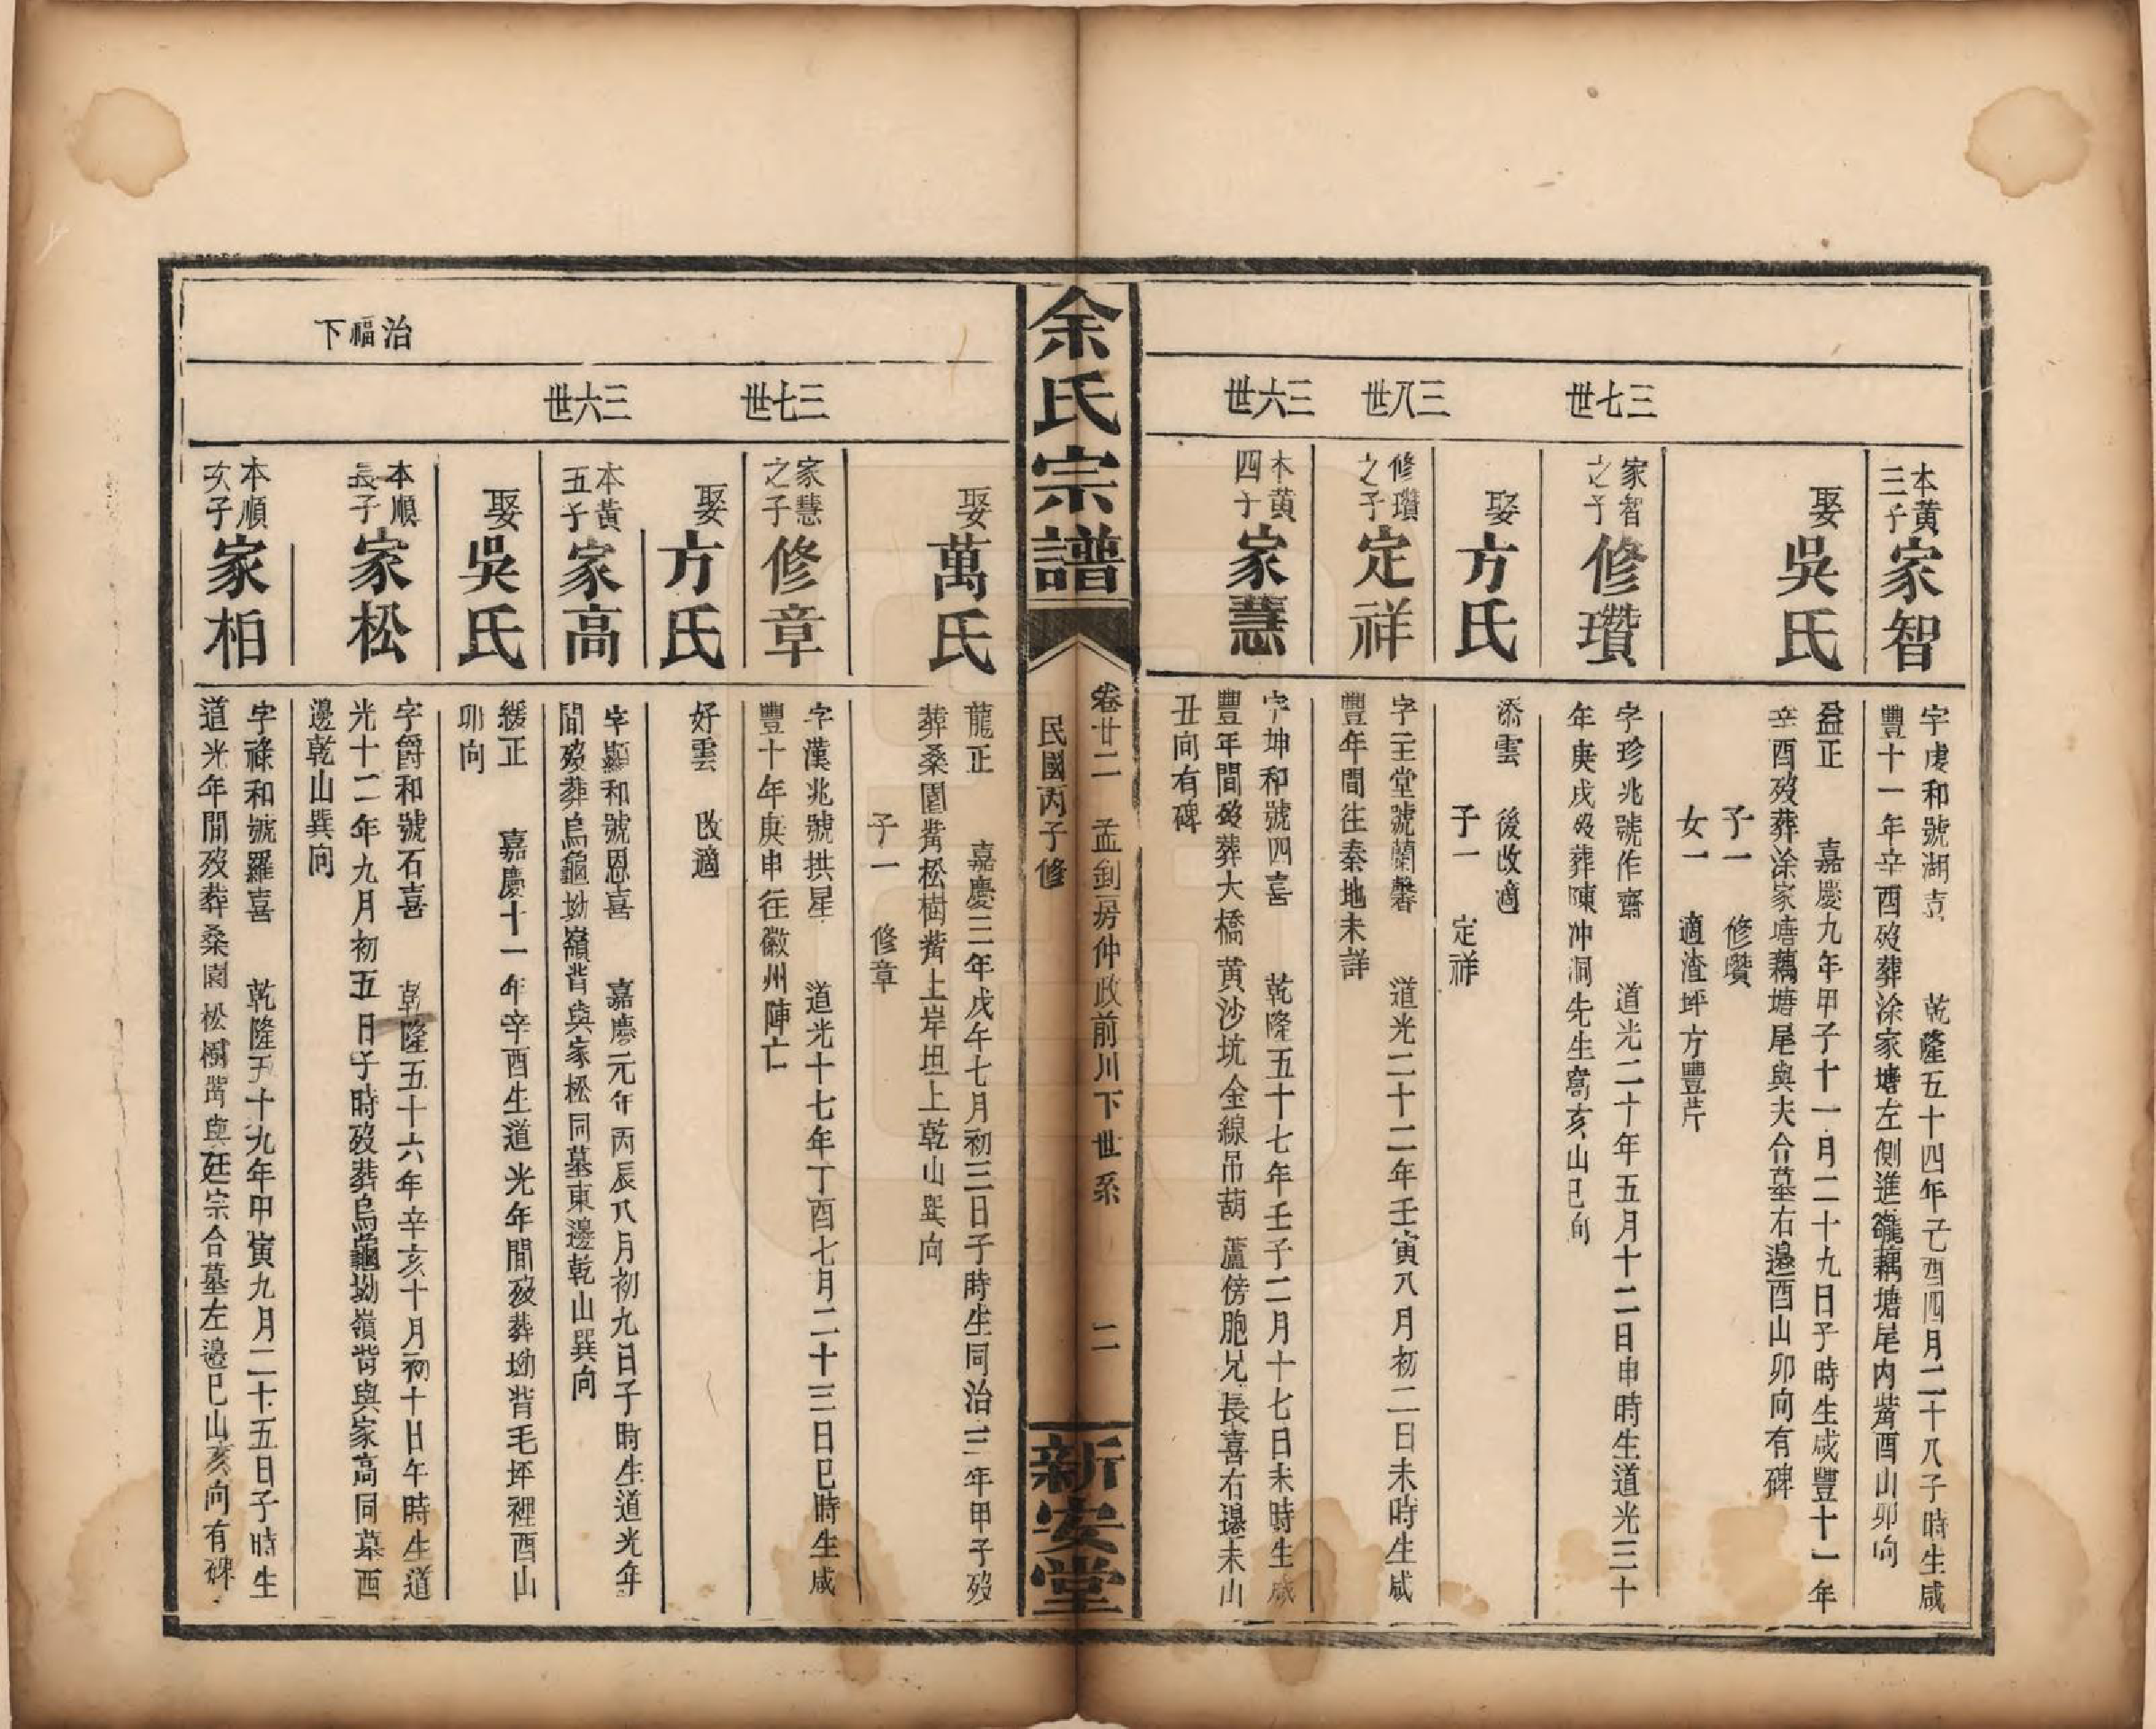 三七世
三八世
三六世
本黄三子
家智
字虔和號湖吉 乾隆五十四年己酉四月二十八子時生咸
豐十一年辛酉歿葬涂家塘左側進礲藕塘尾内嘴酉山卯向
娶
吳氏
益正 嘉慶九年甲子十一月二十九日子時生咸豐十一年
辛酉歿葬涂家塘藕塘尾與夫合墓右邊酉山卯向有碑
子一 修瓚
女一 適渣坪方豐芹
家智之子
修瓚
字珍兆號作齋 道光二十年五月十二日申時生道光三十
年庚戌歿葬陳冲洞先生窩亥山巳向
娶
方氏
添雲 後改適
子一 定祥
修瓚之子
定祥
字玉堂號蘭馨 道光二十二年壬寅八月初二日未時生咸
豐年間往秦地未詳
本黄四子
家慧
字坤和號四喜 乾隆五十七年壬子二月十七日未時生咸
豐年間歿葬大橋黄沙坑金線吊葫蘆傍胞兄長喜右邊未山
丑向有碑
余氏宗譜
卷廿二 孟釗房仲政前川下世系 二
民國丙子修
新安堂
三七世
三六世
治福下
娶
萬氏
龍正 嘉慶三年戊午七月初三日子時生同治三年甲子歿
葬桑園嘴松樹嘴上岸坦上乾山巽向
子一 修章
家慧之子
修章
字漢兆號拱星 道光十七年丁酉七月二十三日巳時生咸
豐十年庚申往徽州陣亡
娶
方氏
好雲 改適
本黄五子
家高
字顯和號恩喜 嘉慶元年丙辰八月初九日子時生道光年
間歿葬烏龜坳嶺背與家松同墓東邊乾山巽向
娶
吳氏
緩正 嘉慶十一年辛酉生道光年間歿葬坳背毛坪裡酉山
卯向
本順長子
家松
字爵和號石喜 乾隆五十六年辛亥十月初十日午時生道
光十二年九月初五日子時歿葬烏龜坳嶺背與家高同墓西
邊乾山巽向
本順次子
家柏
字祿和號羅喜 乾隆五十九年甲寅九月二十五日子時生
道光年間歿葬桑園松樹嘴與廷宗合墓左邊巳山亥向有碑